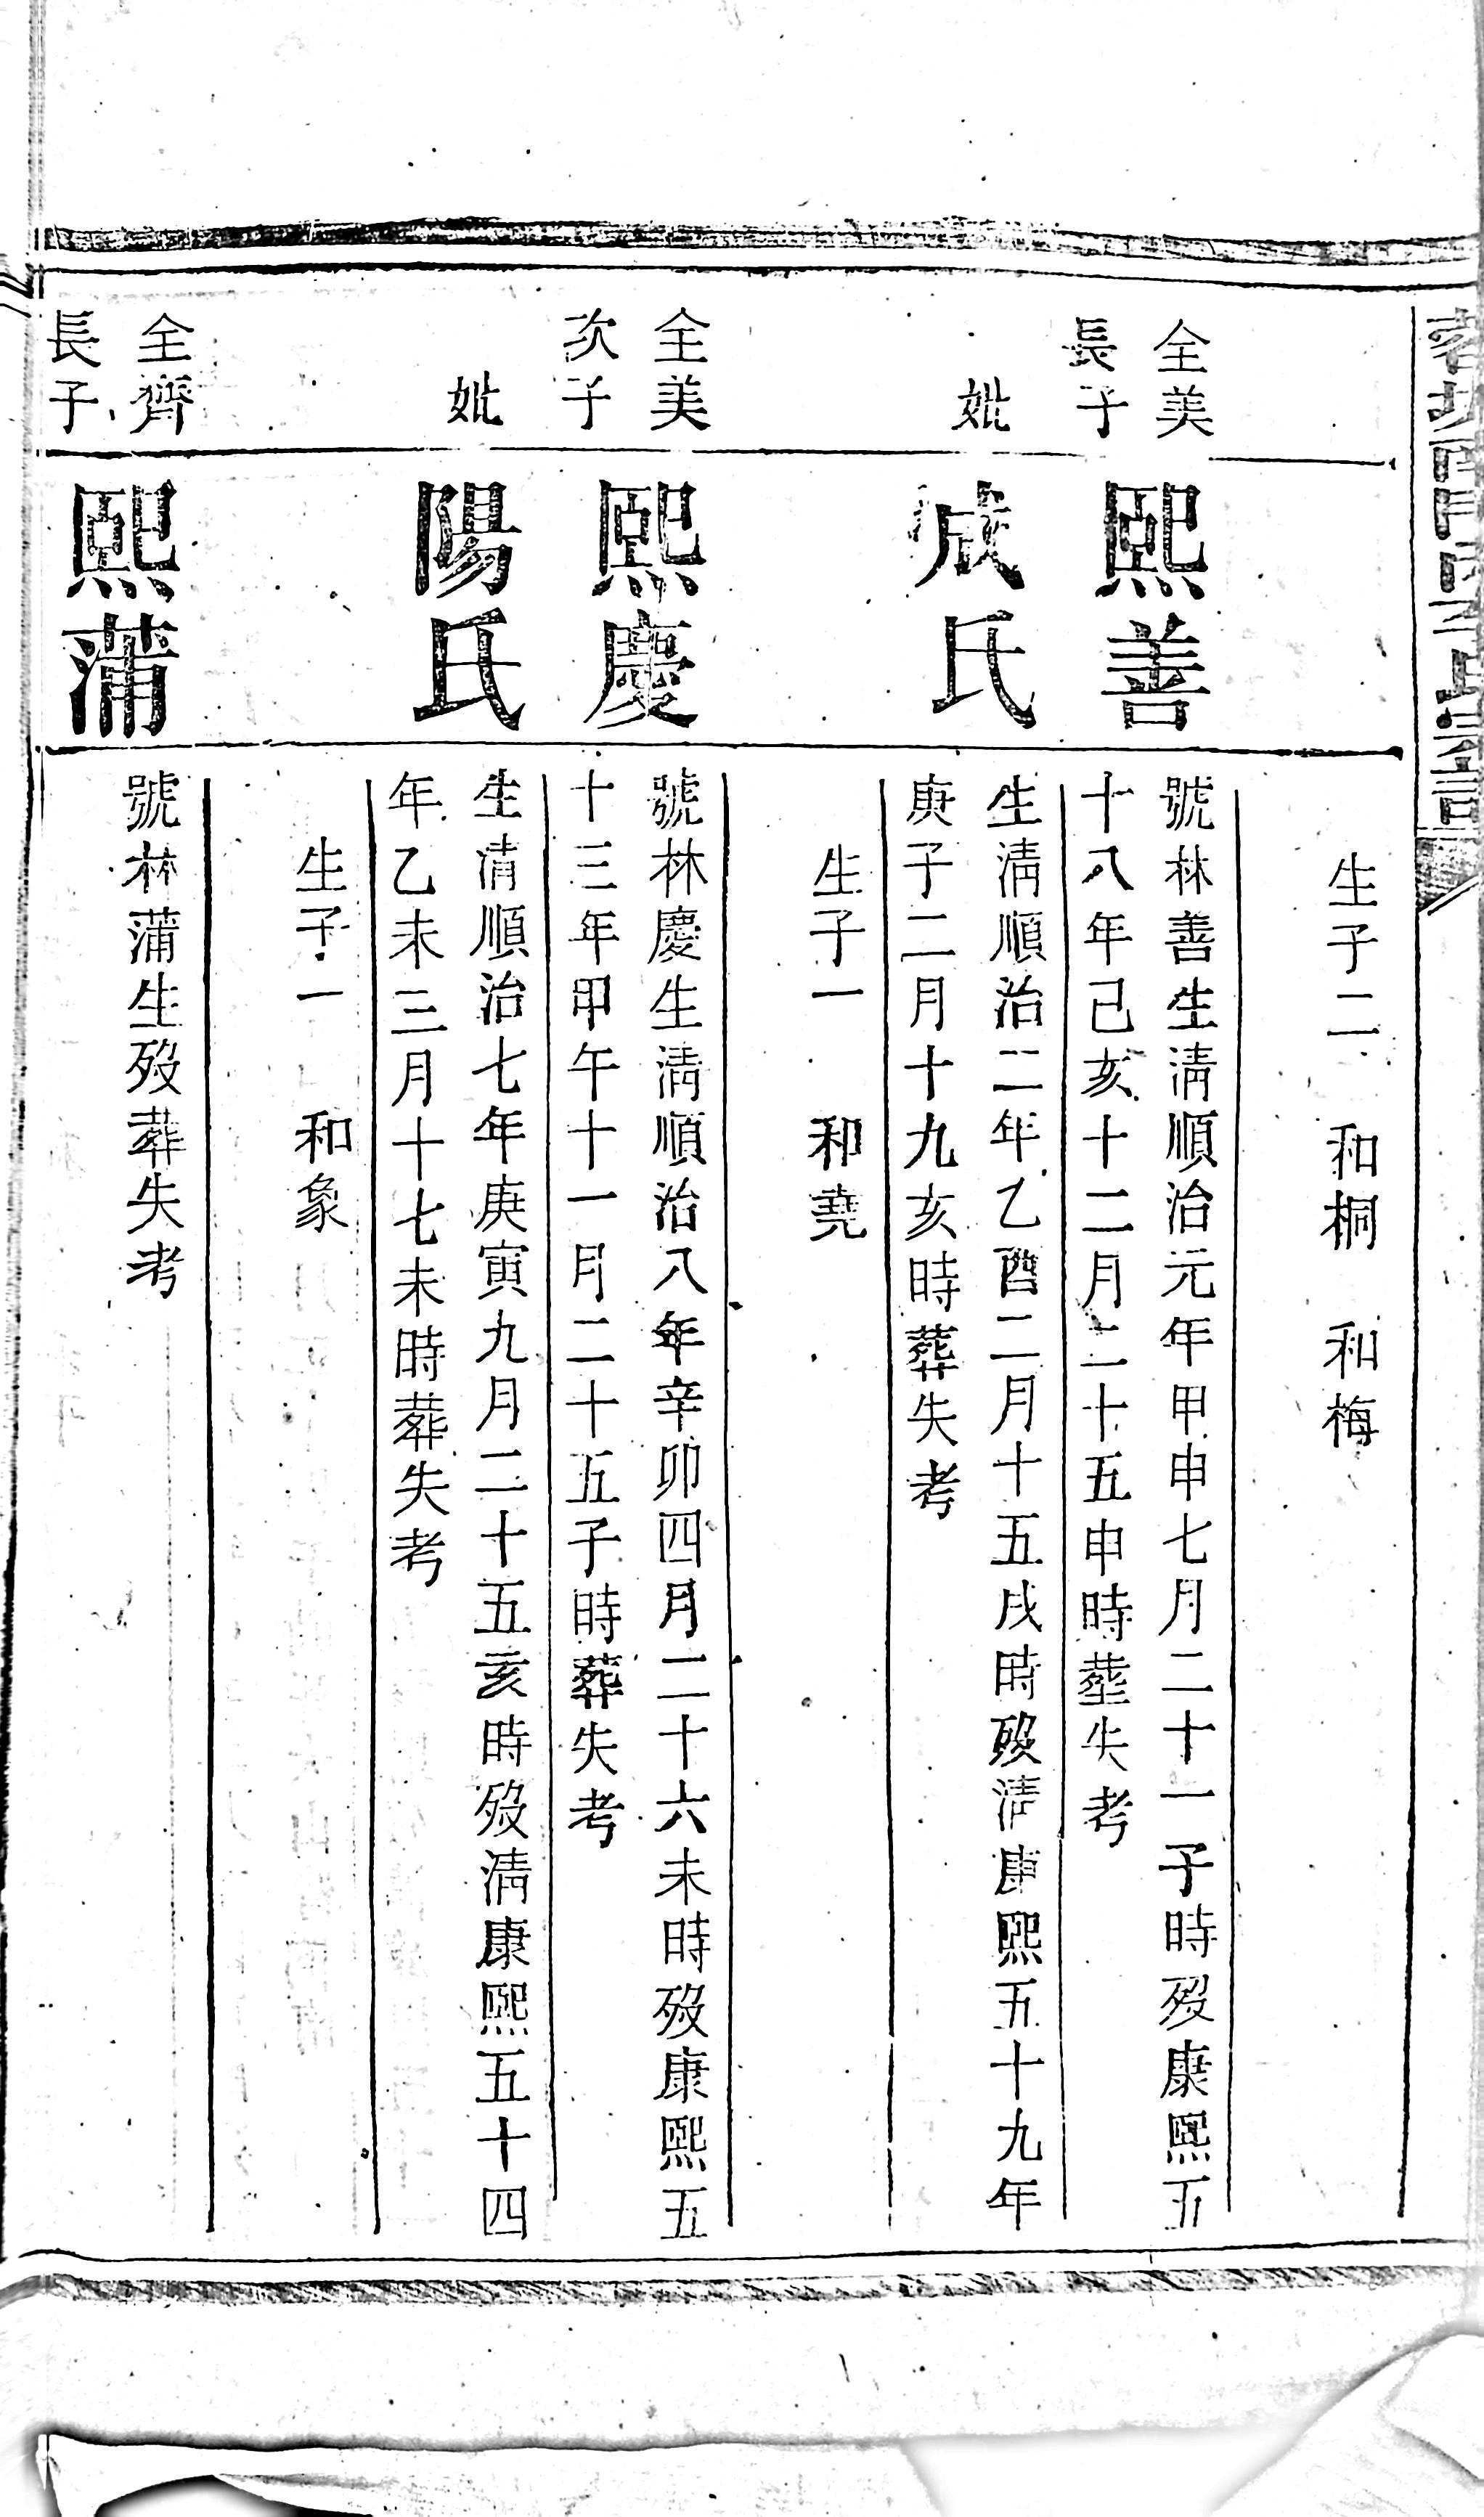 生子二 和桐 和梅
全美
長子
熙善
號林善生淸順治元年甲申七月二十一子時歿康熙五
十八年己亥十二月二十五申時塟失考
妣
成氏
生淸順治二年乙酉二月十五戌時歿淸康熙五十九年
庚子二月十九亥時葬失考
生子一 和堯
全美
次子
熙慶
號林慶生淸順治八年辛卯四月二十六未時歿康熙五
十三年甲午十一月二十五子時葬失考
妣
陽氏
生淸順治七年庚寅九月二十五亥時歿淸康熙五十四
年乙未三月十七未時葬失考
生子一 和象
全齊
長子
熙蒲
號林蒲生歿葬失考